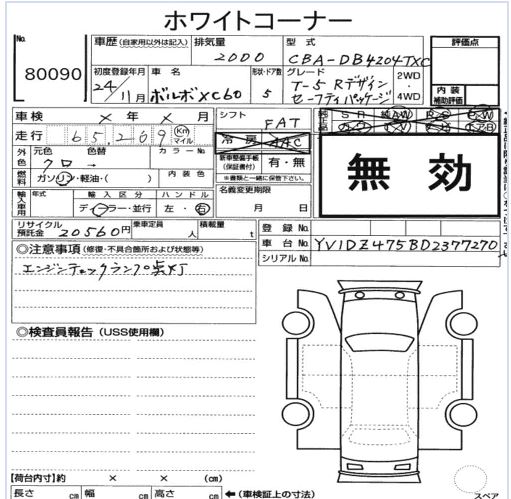 ホワイトコーナー
No. 80090
車歴 (自家用以外は記入) 排気量 2000 型式 CBA-DB4204TXC 評価点
初度登録年月 24年 11月 車名 ボルボXC60 形状・ドア数 5 グレード T-5 Rデザイン セーフティパッケージ 2WD 4WD 内装補助評価
車検 × 年 × 月 シフト FAT
走行 65,209 Km マイル 冷房 AAC
外色 元色 クロ 色替 → カラーNo. 新車整備手帳 (保証書付) 有・無
※書類と一緒に保管下さい。
燃料 ガソリン・軽油・( ) 内装色
輸入車用 年式 輸入区分 ディーラー・並行 ハンドル 左・右 名義変更期限 月 日
無効
リサイクル預託金 20560円 乗車定員 人 積載量 t 登録No.
車台No. YV1DZ475BD2377270
シリアルNo.
◎注意事項 (修復・不具合箇所および状態等)
エンジンチェックランプ点灯
◎検査員報告 (USS使用欄)
【荷台内寸】約 × × (cm)
長さ cm 幅 cm 高さ cm ← (車検証上の寸法)
スペア